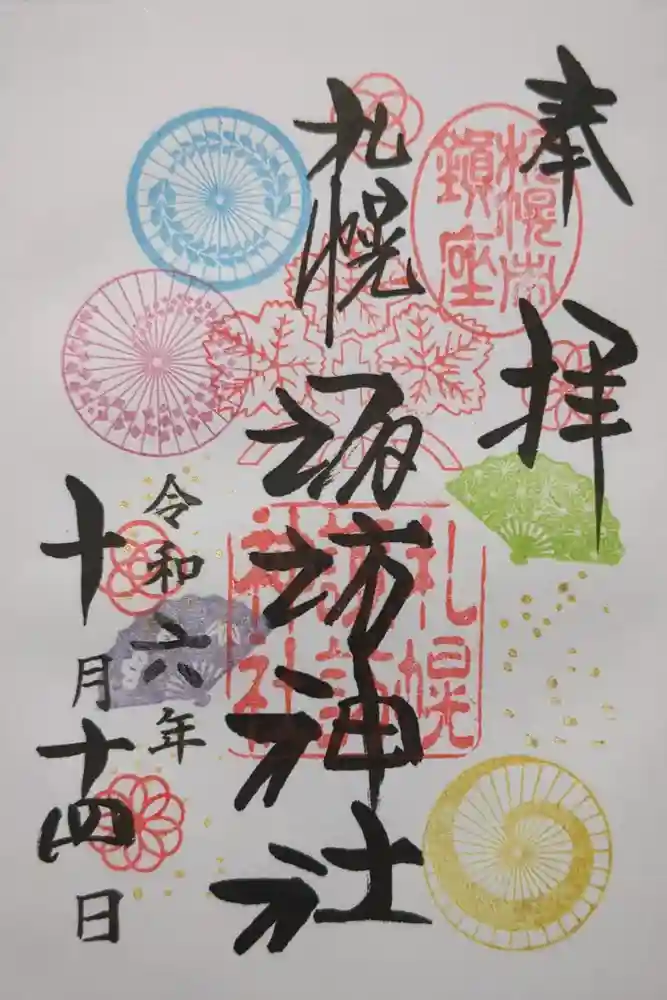 奉拝
札幌
鎮座
札幌諏訪神社
札幌
諏訪
神社
令和六年
十月十四日